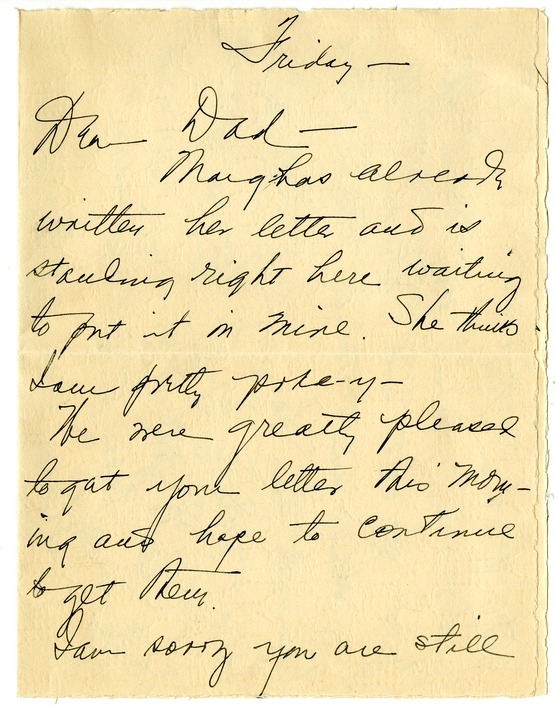 Friday —
Dear Dad —
Marg has already
written her letter and is
standing right here waiting
to put it in mine. She thinks
I am pretty poke-y —
We were greatly pleased
to get your letter this morn-
ing and hope to continue
to get them.
I am sorry you are still